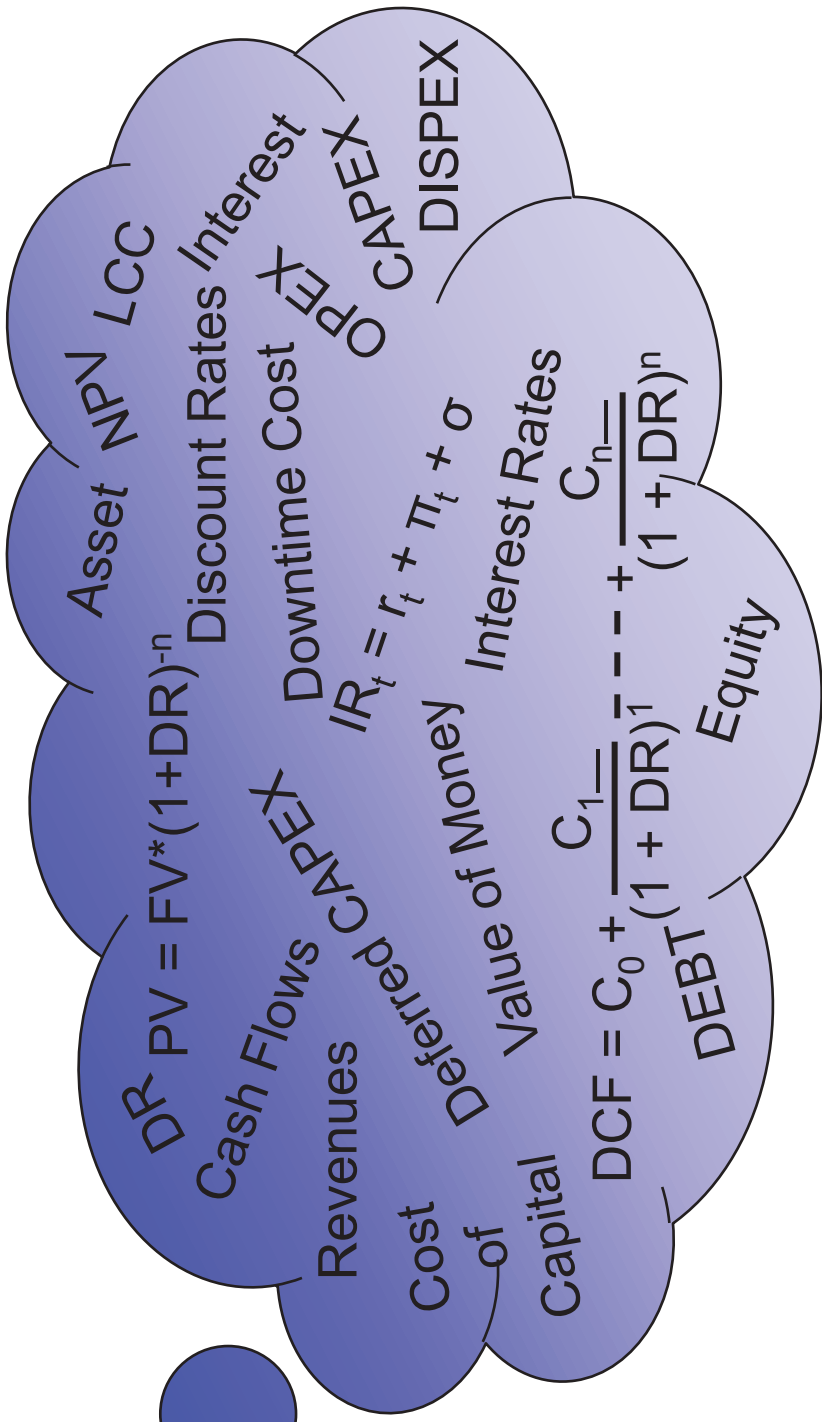 DR
PV = FV*(1+DR)⁻ⁿ
Asset
NPV
LCC
Cash Flows
Discount Rates
Interest
Revenues
Deferred CAPEX
Downtime Cost
OPEX
CAPEX
DISPEX
Cost
of
Capital
Value of Money
IRₜ = rₜ + πₜ + σ
Interest Rates
DCF = C₀ + C₁/(1 + DR)¹ – – – – + Cₙ/(1 + DR)ⁿ
DEBT
Equity